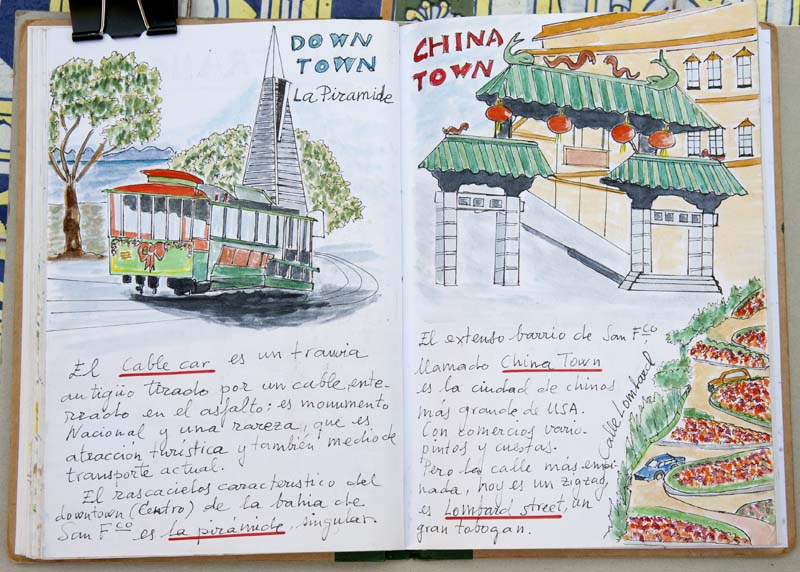 DOWN
TOWN
La Piramide
El Cable car es un tranvia
antigüo tirado por un cable, ente-
rrado en el asfalto; es monumento
Nacional y una rareza, que es
atracción turística y también medio de
transporte actual.
El rascacielos caracteristico del
downtown (Centro) de la bahia de
San Fco es la pirámide, singular.
CHINA
TOWN
El extenso barrio de San Fco
llamado China Town
es la ciudad de chinos
más grande de USA.
Con comercios vario-
pintos y cuestas.
Pero la calle más empi-
nada, hoy es un zigzag,
es Lombard street, un
gran tobogan.
Calle Lombard